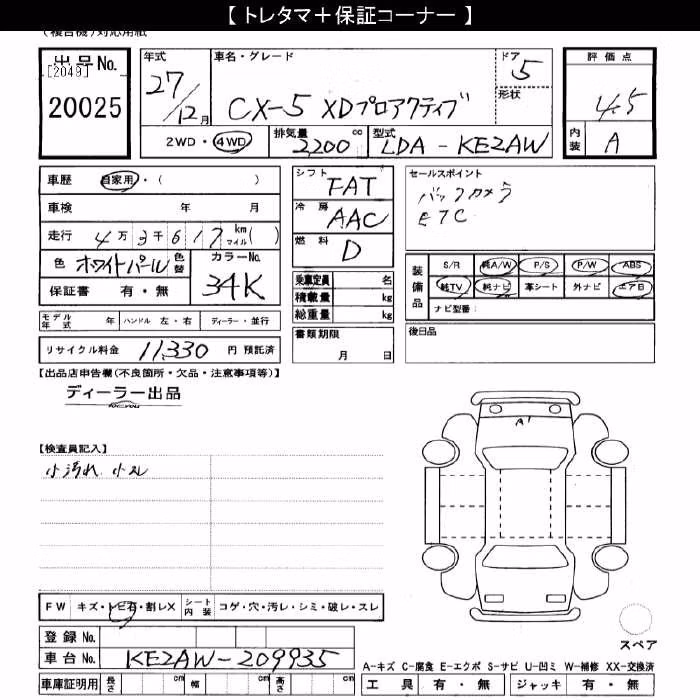 【 トレタマ＋保証コーナー 】
(複合機)対応用紙
出品No.
[2049]
20025
年式
27/12月
車名・グレード
CX-5 XDプロアクティブ
ドア
5
形状
評価点
4.5
内装
A
2WD・4WD
排気量
2200 cc
型式
LDA-KE2AW
車歴 自家用・( )
車検 年 月
走行 4万3千617 km マイル( )
色 ホワイトパール 色替
カラーNo.
34K
保証書 有・無
シフト
FAT
冷房
AAC
燃料
D
乗車定員 名
積載量 kg
総重量 kg
セールスポイント
バックカメラ
ETC
装備品
S/R 純A/W P/S P/W ABS
純TV 純ナビ 革シート 外ナビ エアB
ナビ型番：
モデル年式 年 ハンドル 左・右 ディーラー・並行
リサイクル料金 11,330 円 預託済
書類期限
月 日
後日品
【出品店申告欄(不良箇所・欠品・注意事項等)】
ディーラー出品
【検査員記入】
小汚れ 小スレ
A1
FW キズ・トビ石・割レX シート内装 コゲ・穴・汚レ・シミ・破レ・スレ
登録No.
車台No. KE2AW-209935
車庫証明用 長さ cm 幅 cm 高さ cm
スペア
A-キズ C-腐食 E-エクボ S-サビ U-凹ミ W-補修 XX-交換済
工具 有・無 ジャッキ 有・無